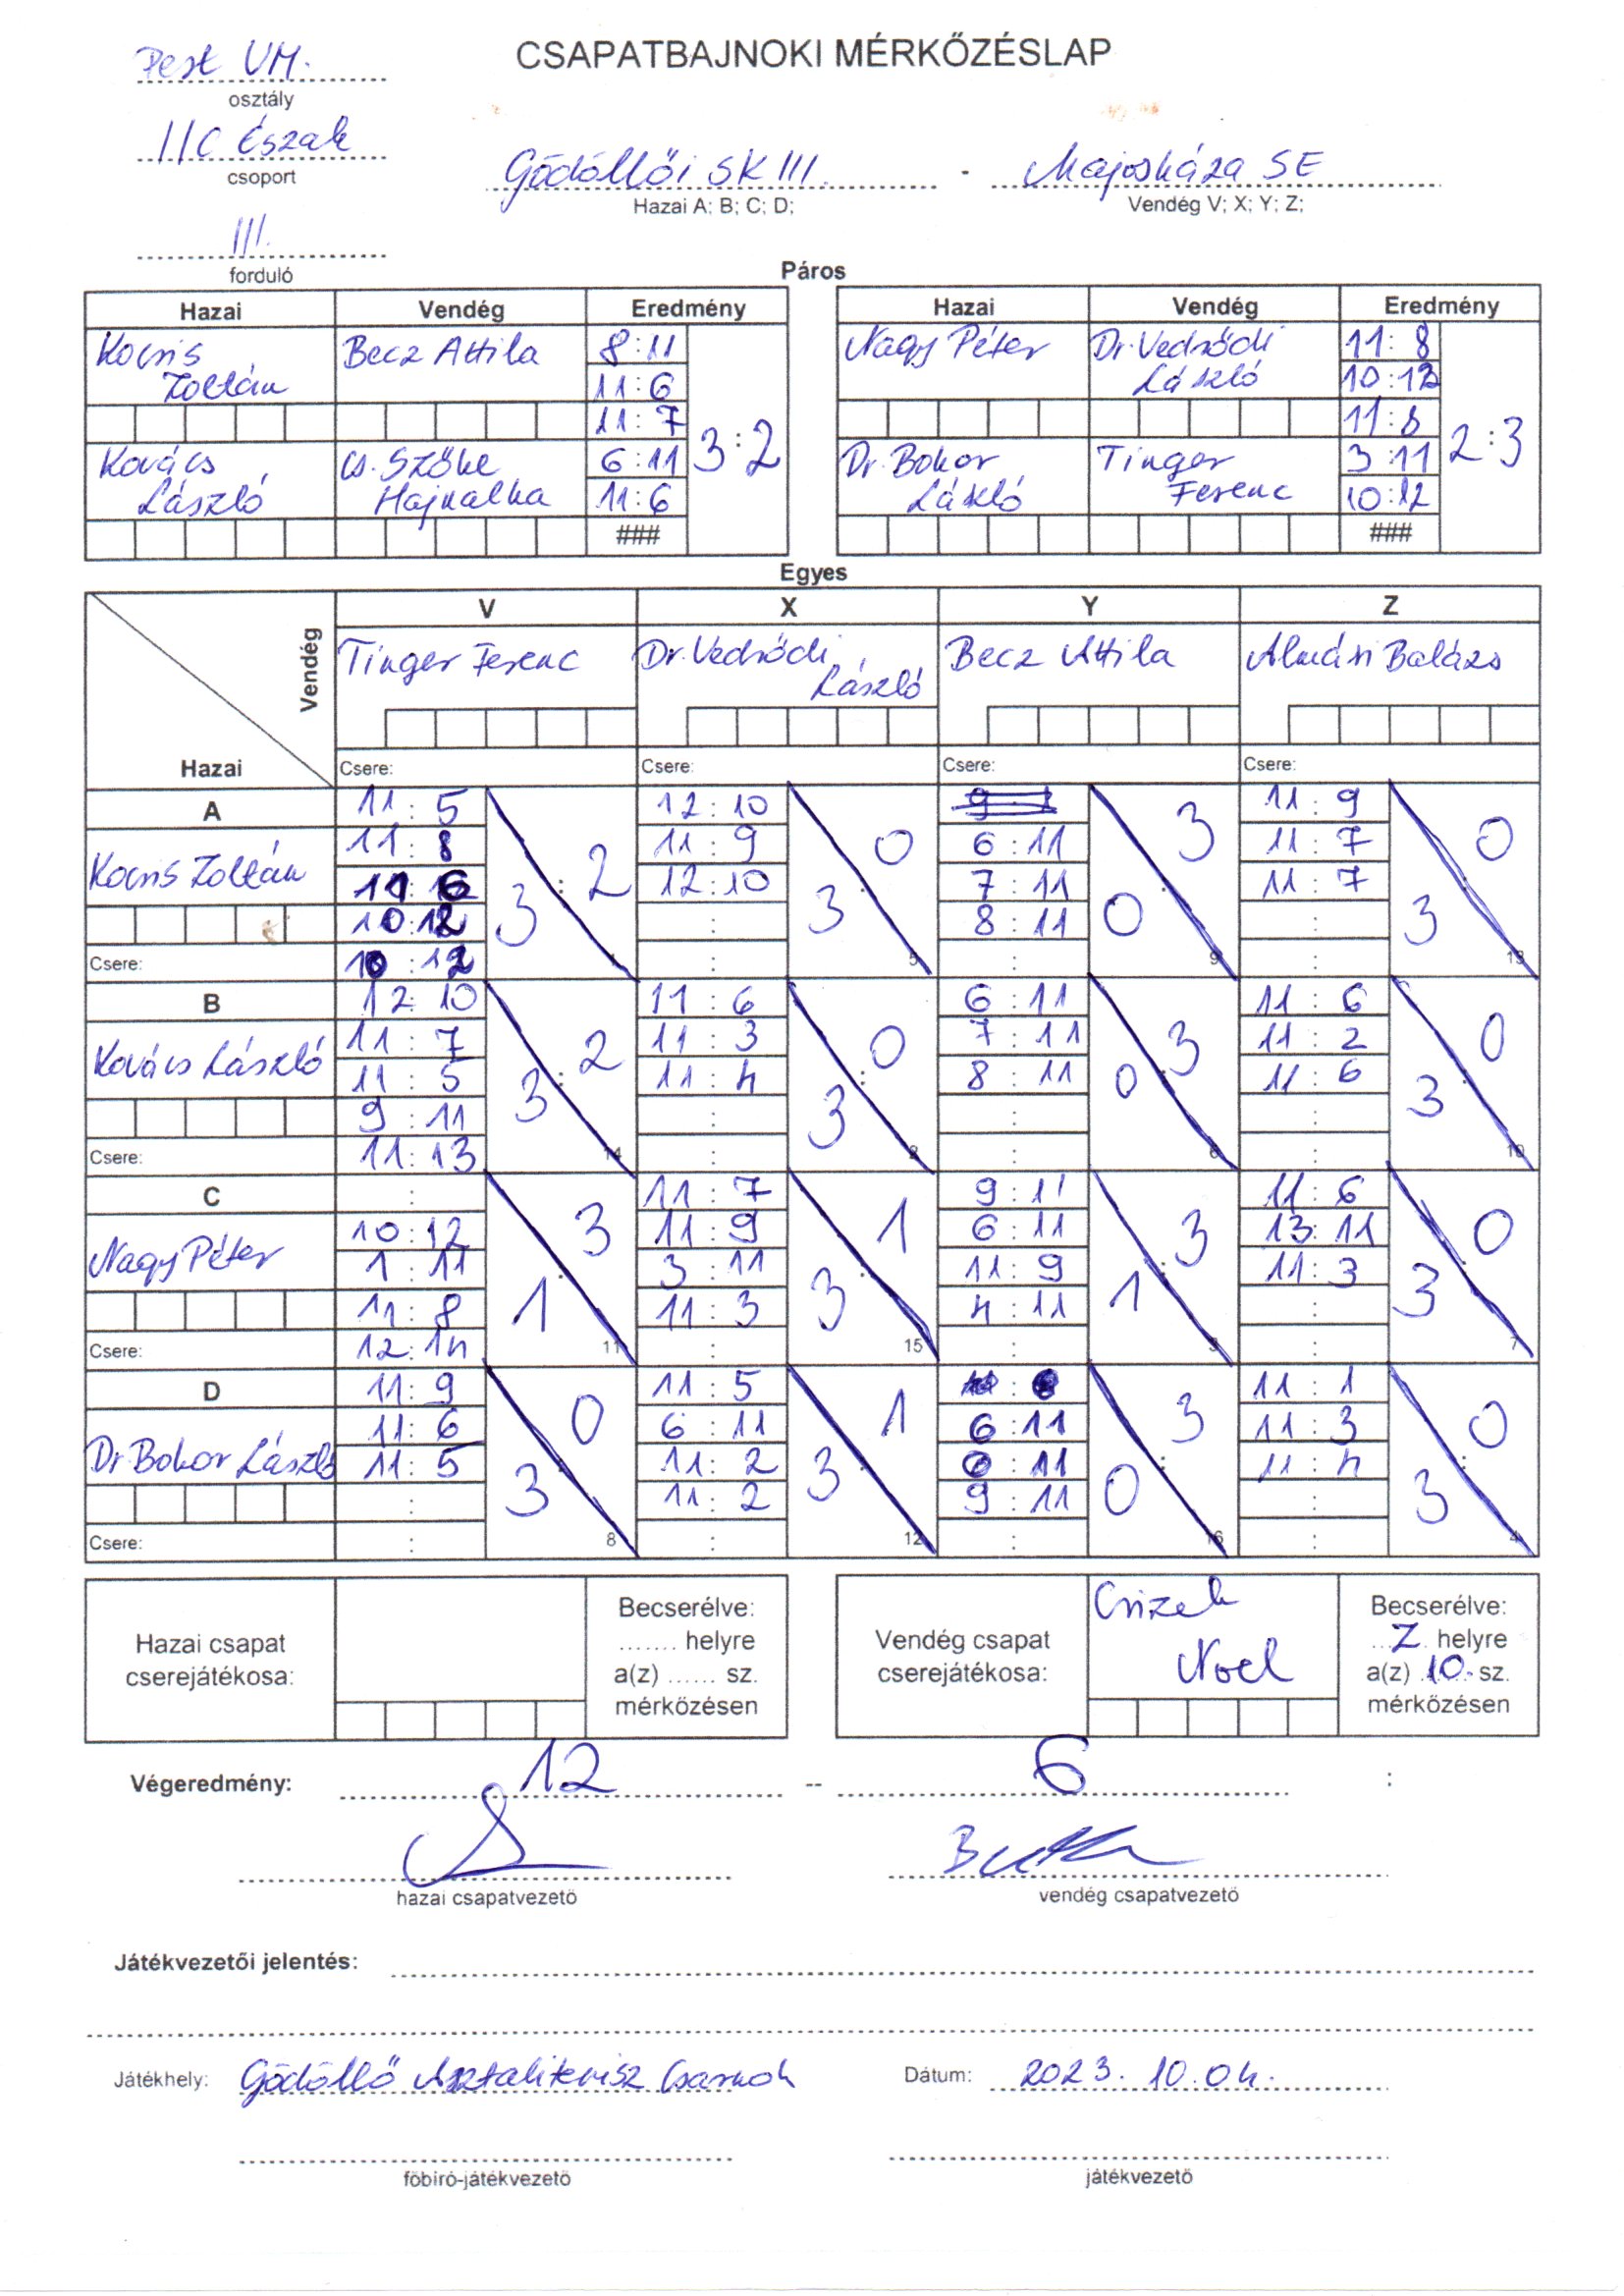 CSAPATBAJNOKI MÉRKŐZÉSLAP
Pest VM.
osztály
IIC Észak
csoport
III.
forduló
Gödöllői SK III. - Majosháza SE
Hazai A; B; C; D; Vendég V; X; Y; Z;
Páros
Hazai Vendég Eredmény
Kocsis Zoltán
Becz Attila
8:11
11:6
11:7
Kovács László
Cs. Szőke Hajnalka
6:11
11:6
###
3:2
Hazai Vendég Eredmény
Nagy Péter
Dr. Vedrődi László
11:8
10:12
11:8
Dr. Bokor László
Tinger Ferenc
3:11
10:12
###
2:3
Egyes
Vendég
Hazai
V X Y Z
Tinger Ferenc
Dr. Vedrődi László
Becz Attila
Almási Balázs
Csere: Csere: Csere: Csere:
A
Kocsis Zoltán
Csere:
11:5
11:8
10:12
10:12
3:2
12:10
11:9
12:10
3:0
5
6:11
7:11
8:11
0:3
9
11:9
11:7
11:7
3:0
13
B
Kovács László
Csere:
12:10
11:7
11:5
9:11
11:13
3:2
14
11:6
11:3
11:4
3:0
2
6:11
7:11
8:11
0:3
6
11:6
11:2
11:6
3:0
10
C
Nagy Péter
Csere:
10:12
1:11
11:8
12:14
1:3
11
11:7
11:9
3:11
11:3
3:1
15
9:11
6:11
11:9
4:11
1:3
3
11:6
13:11
11:3
3:0
7
D
Dr. Bokor László
Csere:
11:9
11:6
11:5
3:0
8
11:5
6:11
11:2
11:2
3:1
12
6:11
6:11
9:11
0:3
16
11:1
11:3
11:4
3:0
4
Hazai csapat
cserejátékosa:
Becserélve:
....... helyre
a(z) ...... sz.
mérkőzésen
Vendég csapat
cserejátékosa:
Csizek
Noel
Becserélve:
Z helyre
a(z) 10. sz.
mérkőzésen
Végeredmény: 12 -- 6 :
hazai csapatvezető
vendég csapatvezető
Játékvezetői jelentés:
Játékhely: Gödöllő Asztalitenisz Csarnok
Dátum: 2023. 10. 04.
főbíró-játékvezető
játékvezető